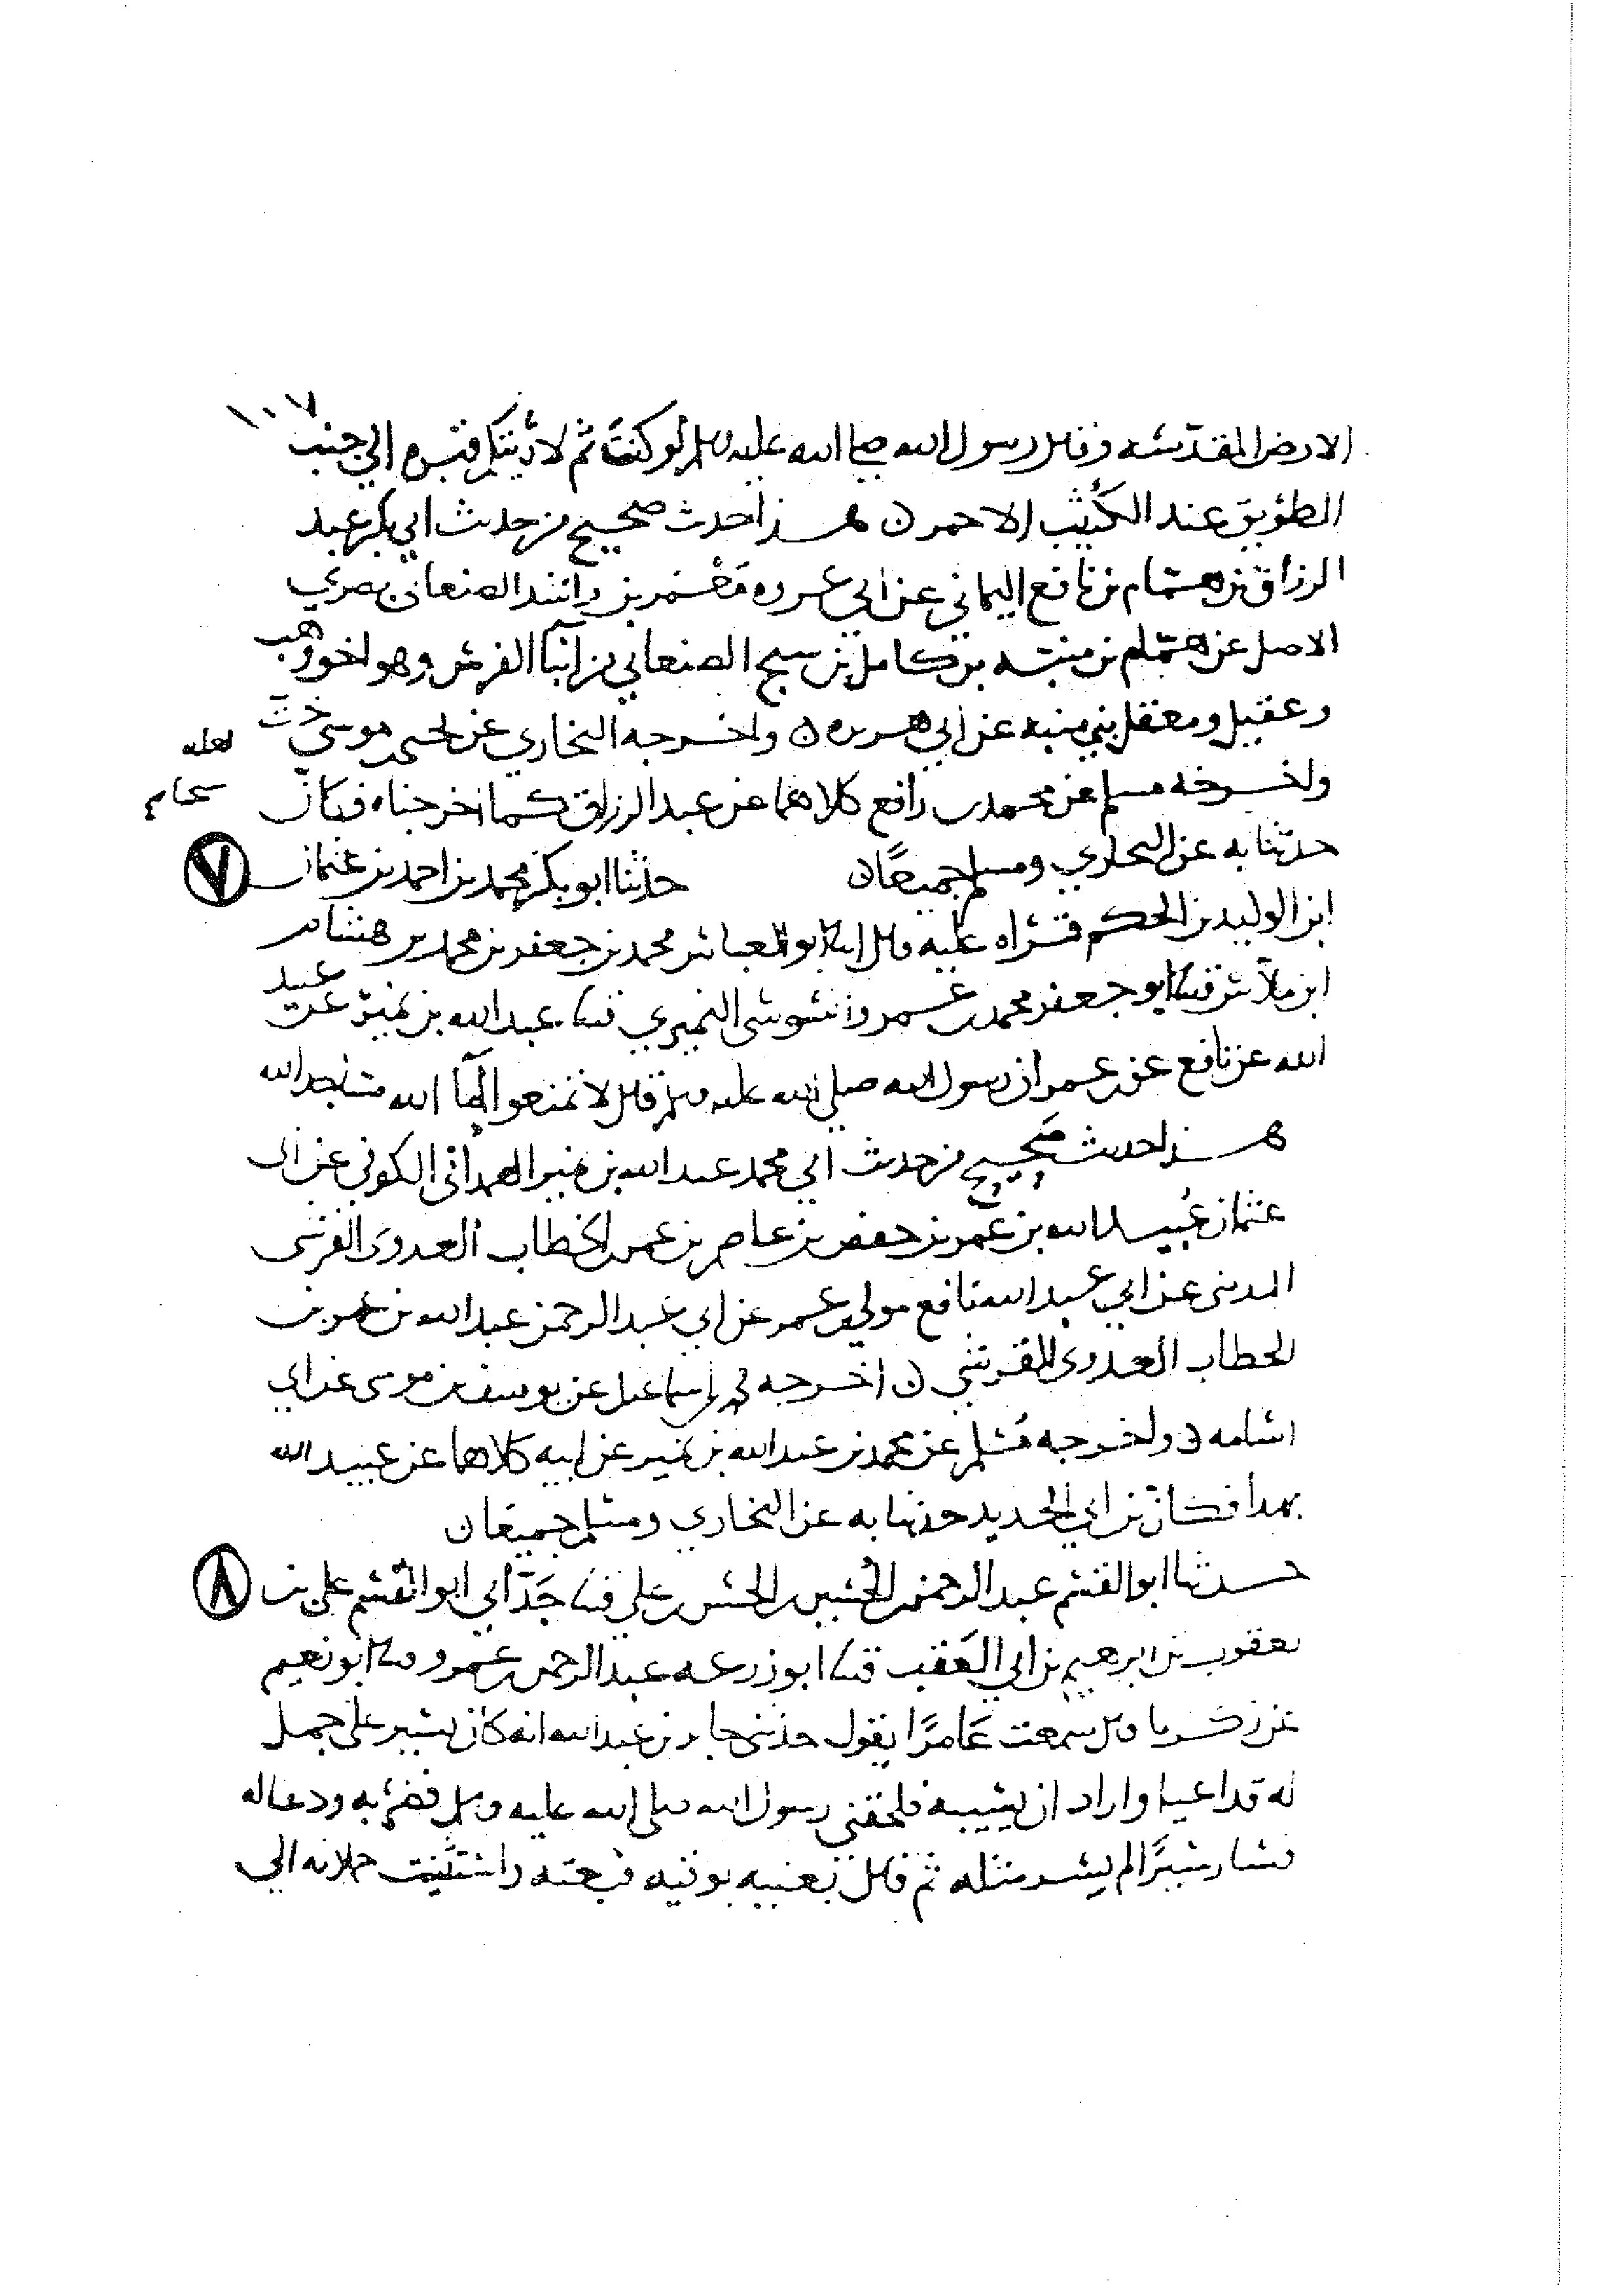 ١٠٧
الارض المقدسه وقال رسول الله صلى الله عليه وسلم لو كنت ثم لاريتكم قبره الي جنب
الطريق عند الكثيب الاحمر ن هذا حديث صحيح من حديث ابي بكر عبد
الرزاق بن همام بن نافع اليماني عن ابي عروه معمر بن راشد الصنعاني بصري
الاصل عن همام بن منبه بن كامل بن سيج الصنعاني من ابنا الفرس وهو اخو وهب
وعقيل ومعقل بني منبه عن ابي هريره ن واخرجه البخاري عن يحيى بن موسى خت
لعله
واخرجه مسلم عن محمد بن رافع كلاهما عن عبد الرزاق كما اخرجناه فكان
حدثنا به عن البخاري ومسلم جميعا ن حدثنا ابو بكر محمد بن احمد بن عثمان ٧
ابن الوليد بن الحكم قراه عليه قال ابنا ابو العباس محمد بن جعفر بن محمد بن هشام
ابن ملاس قثنا ابو جعفر محمد بن عمرو السوسي النميري قثنا عبد الله بن نمير عن عبيد
الله عن نافع عن بن عمر ان رسول الله صلى الله عليه وسلم قال لا تمنعوا امآ الله مساجد الله
هذا حديث صحيح من حديث ابي محمد عبد الله بن نمير الهمداني الكوفي عن ابي
عثمان عبيد الله بن عمر بن حفص بن عاصم بن عمر بن الخطاب العدوى القرشى
المدني عن ابي عبد الله نافع مولي بن عمر عن ابي عبد الرحمن عبد الله بن عمر بن
الخطاب العدوى القرشي ن اخرجه محمد بن اسماعيل عن يوسف بن موسى عن ابي
اسامه ن واخرجه مسلم عن محمد بن عبد الله بن نمير عن ابيه كلاهما عن عبيد الله
بهذا فكان بن ابي الحديد حدثنا به عن البخاري ومسلم جميعا ن
حدثنا ابو القسم عبد الرحمن بن الحسين بن الحسن بن علي قثنا جد ابي ابو القسم علي بن ٨
يعقوب بن ابرهيم بن ابي العقب قثنا ابو زرعه عبد الرحمن بن عمرو قثنا ابو نعيم
عن زكريا قال سمعت عامرا يقول حدثني جابر بن عبد الله انه كان يسير على جمل
له قد اعيا واراد ان يسيبه فلحقني رسول الله صلى الله عليه وسلم فضربه ودعا له
فسار سيرا لم يسر مثله ثم قال بعنيه بوقيه فبعته واستثنيت حملانه الي